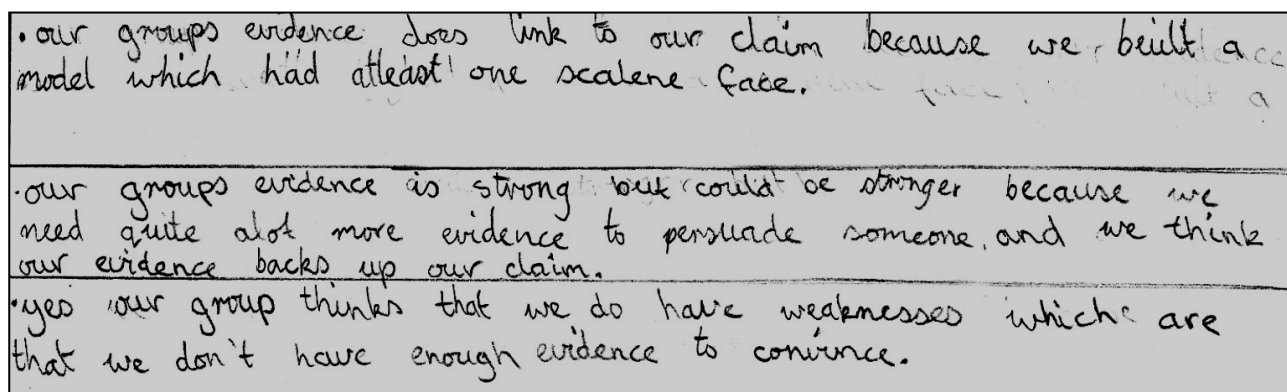 · our groups evidence does link to our claim because we built a
model which had atleast one scalene face.
· our groups evidence is strong but could be stronger because we
need quite alot more evidence to persuade someone, and we think
our evidence backs up our claim.
· yes our group thinks that we do have weaknesses which are
that we don't have enough evidence to convince.